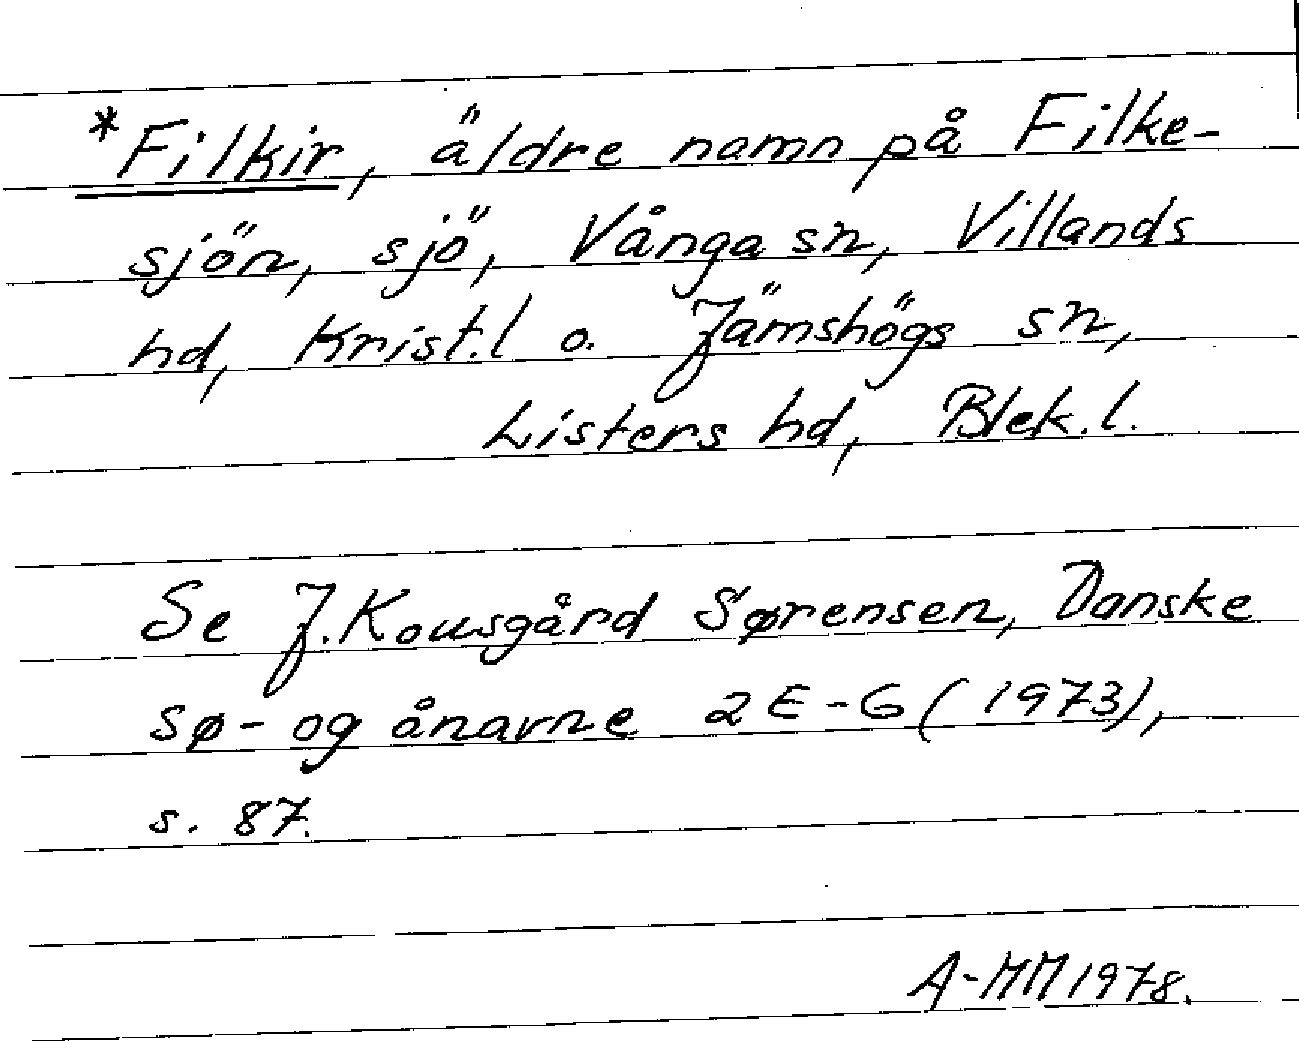 *Filkir, äldre namn på Filke-
sjön, sjö, Vånga sn, Villands
hd, Krist.l o. Jämshögs sn,
Listers hd, Blek.l.
Se J.Kousgård Sørensen, Danske
sø- og ånavne 2 E-G (1973),
s. 87.
A-MM 1978.